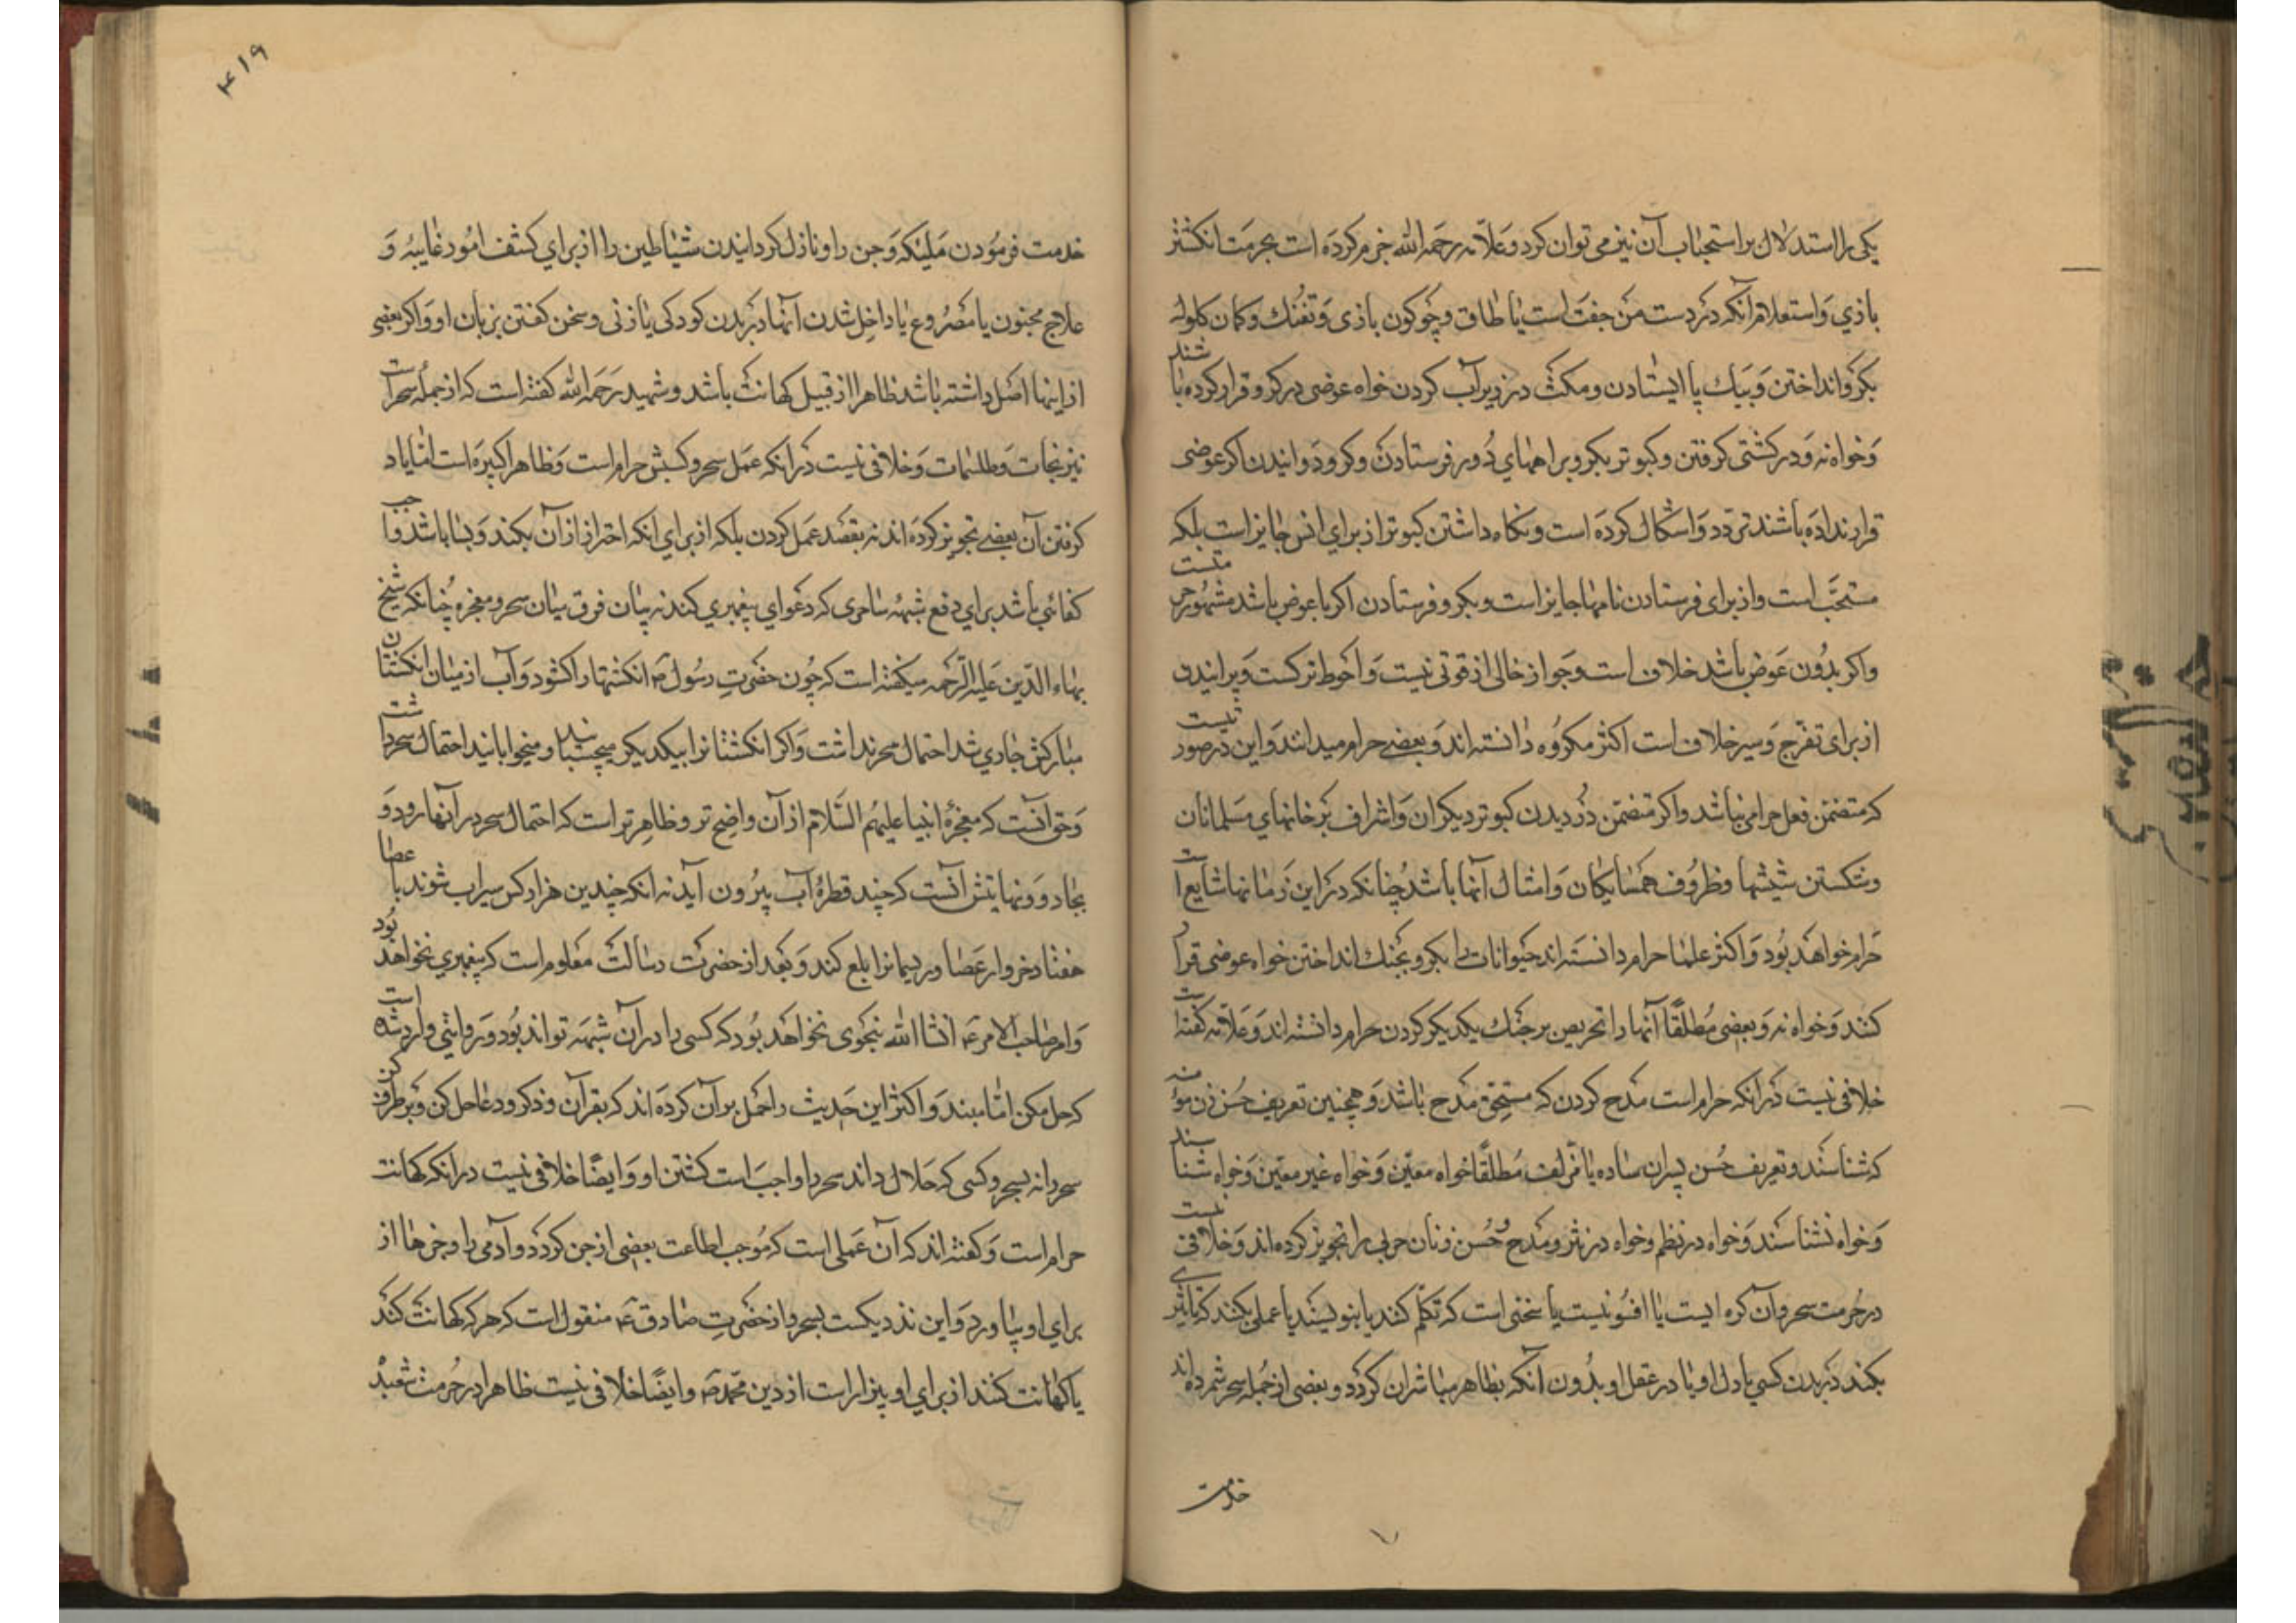 یکی را استدلال بر استحباب آن نیز می توان کرد و علامه رحمه الله جزم کرده است بحرمت انکشتر
بازی و استعلام آنکه در دست من جفت است یا طاق و چوکون بازی و تفنک و کمان کلوله
بکرو انداختن و بیک پا ایستادن و مکث در زیر آب کردن خواه عوضی در کرو قرار کرده باشند
و خواه نه و در کشتی کرفتن و کبوتر بکرو براههای دور فرستادن و کرو دوانیدن اکر عوضی
قرار نداده باشند تردد و اشکال کرده است و نکاه داشتن کبوتر از برای انس جایز است بلکه
مستحب است و از برای فرستادن نامها جایز است و بکرو فرستادن اکر با عوض باشد مشهور حرمتست
و اکر بدون عوض باشد خلاف است و جواز خالی از قوتی نیست و احوط ترکست و پرانیدن
از برای تفرج و سیر خلاف است اکثر مکروه دانسته اند و بعضی حرام میدانند و این در صورتیست
که متضمن فعل حرامی نباشد و اکر متضمن دزدیدن کبوتر دیکران و اشراف بر خانهای مسلمانان
و شکستن شیشها و ظروف همسایکان و امثال آنها باشد چنانکه در این زمانها شایع است
حرام خواهد بود و اکثر علما حرام دانسته اند حیوانات را بکرو بجنک انداختن خواه عوضی قرار
کنند و خواه نه و بعضی مطلقا آنها را تحریص بر جنک یکدیکر کردن حرام دانسته اند و علامه کفته است
خلافی نیست در آنکه حرام است مدح کردن که مستحق مدح باشد و همچنین تعریف حسن زن مؤمنه
که شناسند و تعریف حسن پسران ساده یا مزلف مطلقا خواه معین و خواه غیر معین و خواه شناسند
و خواه نشناسند و خواه در نظم و خواه در نثر و مدح حسن زنان حربی را تجویز کرده اند و خلافی نیست
در حرمت سحر و آن کره ایست یا افسونیست یا سخنی است که تکلم کنند یا بنویسند یا عملی بکنند که تاثیری
بکند در بدن کسی یا دل او یا در عقل او بدون آنکه بظاهر مباشر آن کردد و بعضی از جمله سحر شمرده اند
خدمت
۴۱۹
خدمت فرمودن ملیکه و جن را و نازل کردانیدن شیاطین را از برای کشف امور غایبه و
علاج مجنون یا مصروع یا داخل شدن آنها در بدن کودکی یا زنی و سخن کفتن بزبان او و اکر بعضی
از اینها اصل داشته باشد ظاهرا از قبیل کهانت باشد و شهید رحمه الله کفته است که از جمله سحر است
نیرنجات و طلسمات و خلافی نیست در آنکه عمل سحر و کسبش حرام است و ظاهرا کبیره است اما یاد
کرفتن آن بعضی تجویز کرده اند نه بقصد عمل کردن بلکه از برای آنکه احتراز از آن بکند و بسا باشد واجب
کفائی باشد برای دفع شبهه ساحری که دعوای پیغمبری کند نه بیان فرق میان سحر و معجزه چنانکه شیخ
بهاء الدین علیه الرحمه میکفته است که چون حضرت رسول ص انکشتها را کشود و آب از میان انکشتان
مبارکش جاری شد احتمال سحر نداشت و اکر انکشتانرا بیکدیکر میچسبانید و میخوابانید احتمال سحر داشت
و حق آنست که معجزه انبیا علیهم السلام از آن واضح تر و ظاهرتر است که احتمال سحر در آنها رود و
بجادو و نهایتش آنست که چند قطره آب بیرون آید نه آنکه چندین هزار کس سیراب شوند با عصا
هفتاد خروار عصا و ریسمانرا بلع کند و بعد از حضرت رسالت معلوم است که پیغمبری نخواهد بود
و امر صاحب الامر ع انشاالله بنحوی نخواهد بود که کسی را در آن شبهه تواند بود و روایتی وارد شده است
که حل مکن اما مبند و اکثر این حدیث را حمل بر آن کرده اند که بقرآن و ذکر و دعا حل کن و برطرف کن
سحر را نه بسحر و کسی که حلال داند سحر را واجب است کشتن او و ایضا خلافی نیست در آنکه کهانت
حرام است و کفته اند که آن عملی است که موجب اطاعت بعضی از جن کردد و آدمی را و خبرها از
برای او بیاورد و این نزدیکست بسحر و از حضرت صادق ع منقول است که هر که کهانت کند
یا کهانت کنند از برای او بیزار است از دین محمد ص و ایضا خلافی نیست ظاهرا در حرمت شعبده